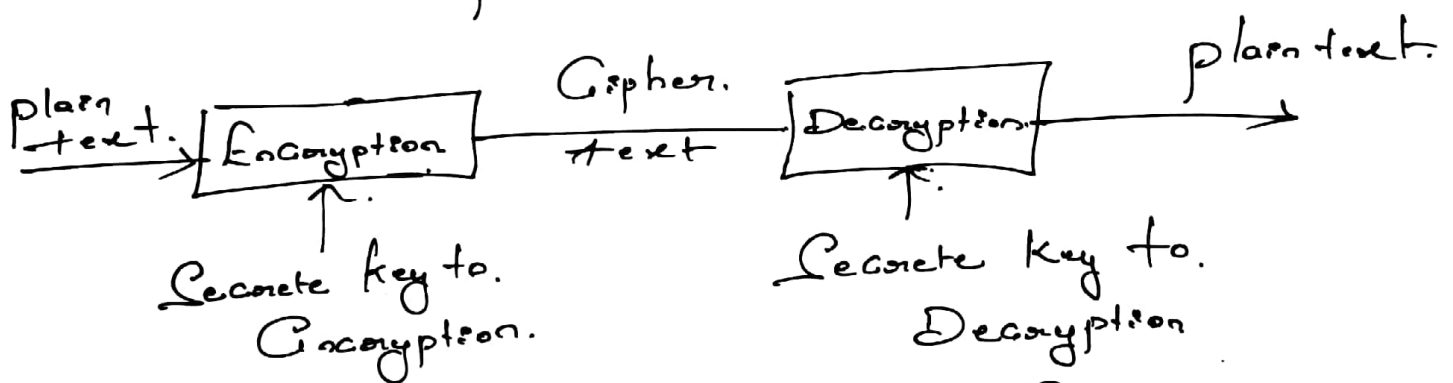 plain
text.
Encryption
Cipher.
text
Decryption.
plain text.
Secrete key to.
Encryption.
Secrete Key to.
Decryption